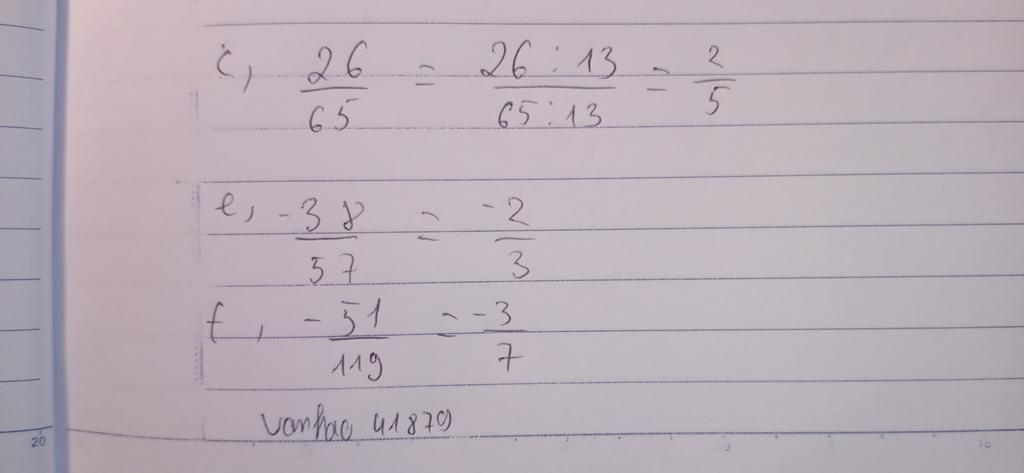 c, 26/65 = 26:13/65:13 = 2/5
e, -38/57 = -2/3
f, -51/119 = -3/7
vanhao 41879
20